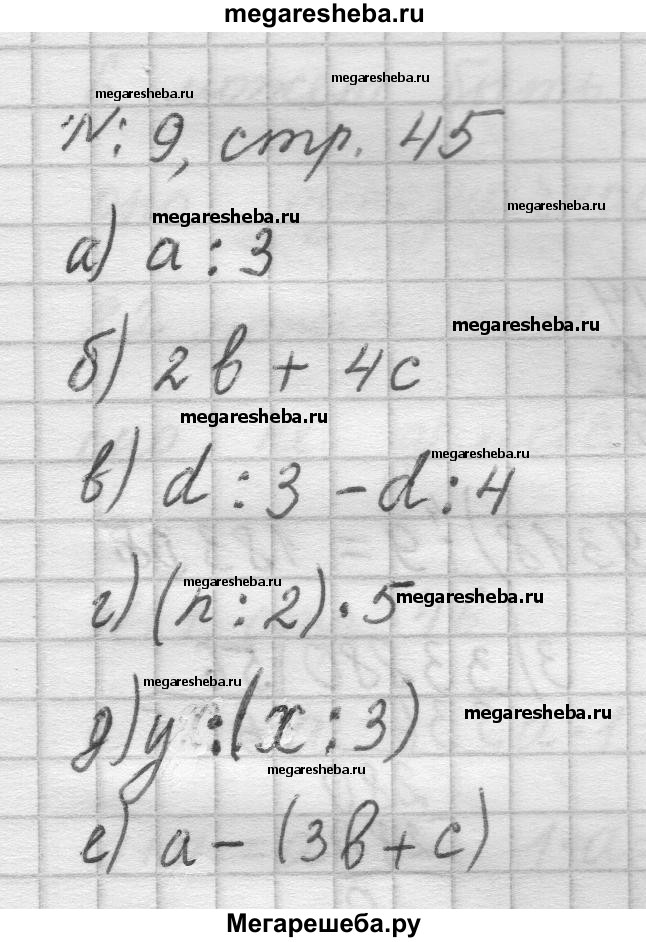 megaresheba.ru
megaresheba.ru
megaresheba.ru
№: 9, стр. 45
megaresheba.ru
megaresheba.ru
а) a : 3
megaresheba.ru
б) 2b + 4c
megaresheba.ru
megaresheba.ru
в) d : 3 - d : 4
megaresheba.ru
megaresheba.ru
г) (n : 2) · 5
megaresheba.ru
megaresheba.ru
д) y : (x : 3)
megaresheba.ru
е) a - (3b + c)
Мегарешеба.ру